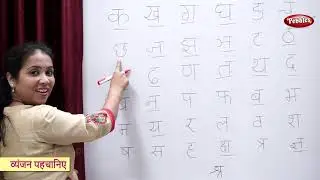 Pebbles
क ख ग घ ङ च
छ ज झ ञ ट ठ
ढ ण त थ द
न प फ ब भ
म य र ल व श
ष स ह क्ष त्र ज्ञ
श्र
व्यंजन पहचानिए